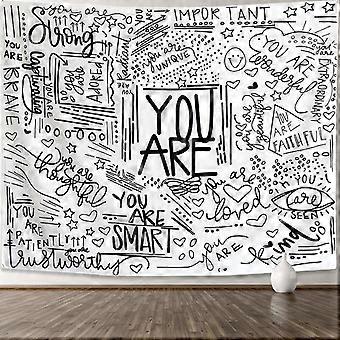 YOU ARE
Strong
YOU ARE
BRAVE
you are
Radiant
YOU ARE
ADORED
IMPORTANT
you are
UNIQUE
YOU ARE
wonderful
YOU ARE
EXTRAORDINARY
you are
beautiful
YOU
ARE
FAITHFUL
YOU
ARE
you are
thoughtful
YOU ARE
SMART
you are
loved
YOU
ARE
SEEN
YOU
ARE
PATIENTLY
you are
trustworthy
you
ARE
Kind